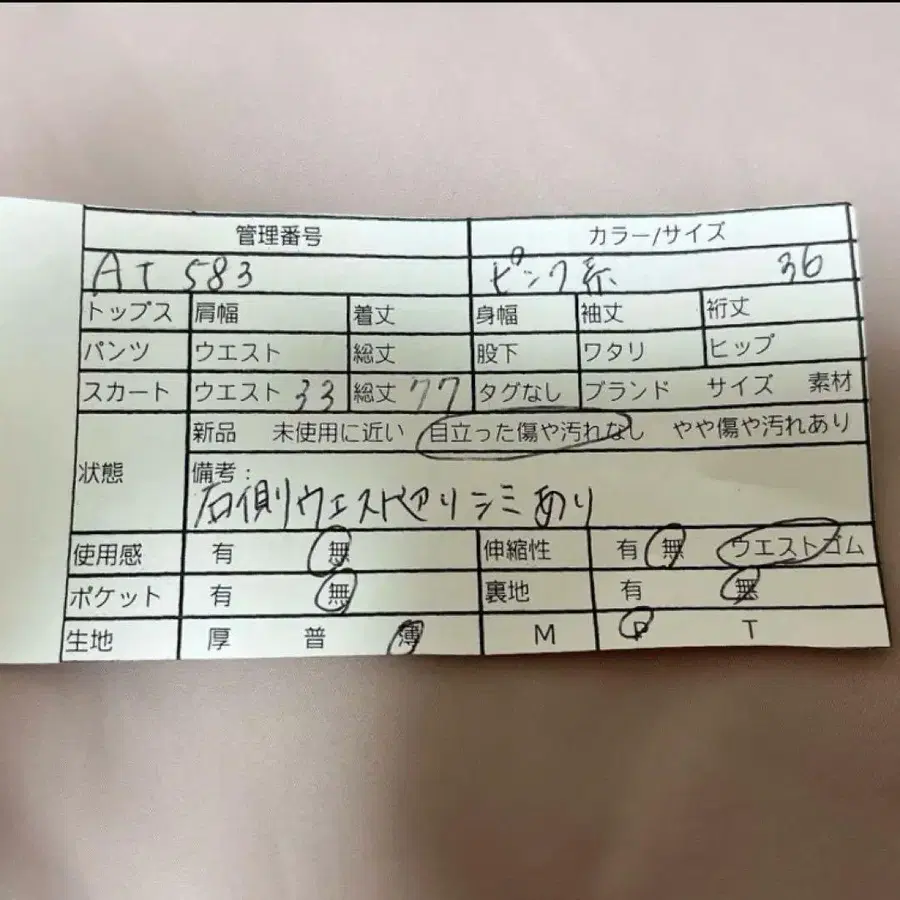 管理番号 カラー/サイズ
AT 583 ピンク系 36
トップス 肩幅 着丈 身幅 袖丈 裄丈
パンツ ウエスト 総丈 股下 ワタリ ヒップ
スカート ウエスト 33 総丈 77 タグなし ブランド サイズ 素材
状態 新品 未使用に近い 目立った傷や汚れなし やや傷や汚れあり
備考:
右側ウエスト辺りシミあり
使用感 有 無 伸縮性 有 無 ウエストゴム
ポケット 有 無 裏地 有 無
生地 厚 普 薄 M P T